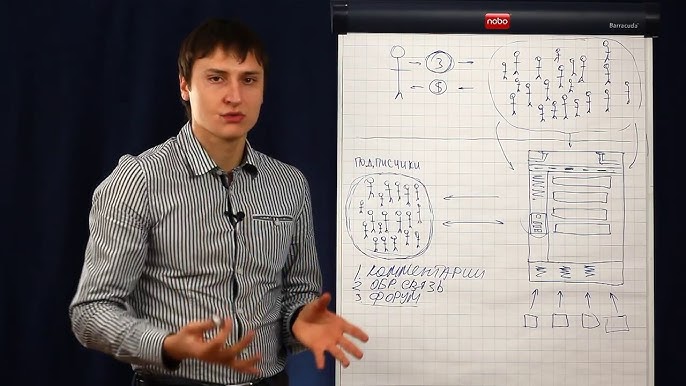 nobo
Barracuda
3
$
ПОДПИСЧИКИ
1 КОММЕНТАРИИ
2 ОБР СВЯЗЬ
3 ФОРУМ